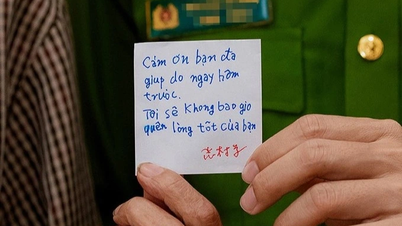 Cảm ơn bạn đa
giup do ngay hôm
trước.
Tôi sẽ không bao gio
quên lòng tốt của bạn